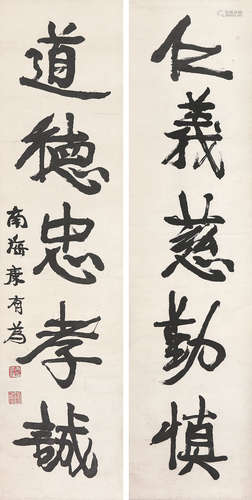 仁義慈勤慎
道德忠孝誠
南海康有為